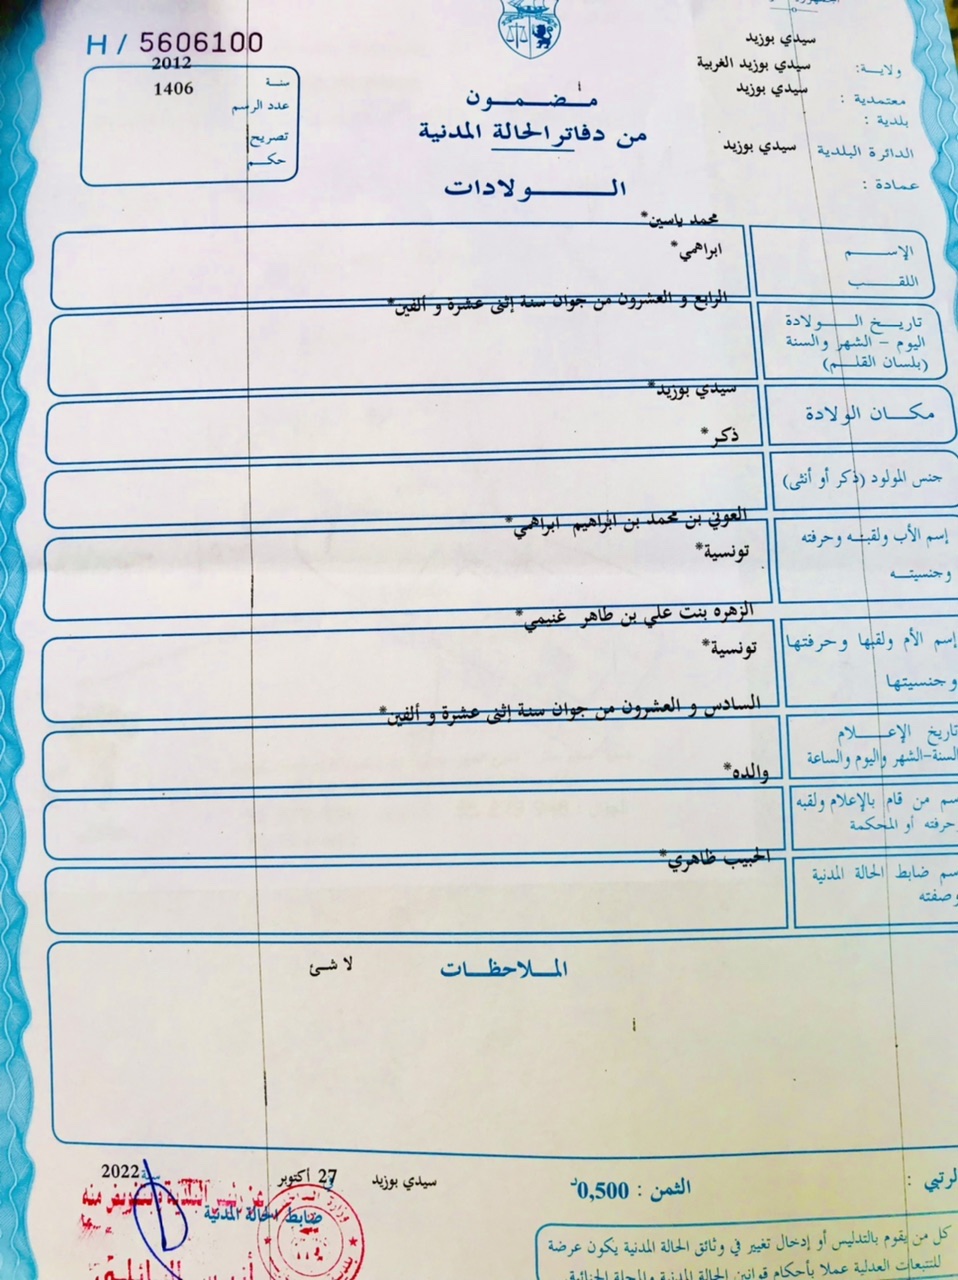 H / 5606100
2012
سنة
1406
عدد الرسم
تصريح
حكم
سيدي بوزيد
ولاية:
سيدي بوزيد الغربية
معتمدية :
سيدي بوزيد
بلدية :
الدائرة البلدية
سيدي بوزيد
عمادة :
مضمون
من دفاتر الحالة المدنية
الولادات
محمد ياسين*
الإسم
ابراهمي*
اللقب
الرابع و العشرون من جوان سنة إثنى عشرة و ألفين*
تاريخ الولادة
اليوم - الشهر والسنة
(بلسان القلم)
سيدي بوزيد*
مكان الولادة
ذكر*
جنس المولود (ذكر أو أنثى)
العوني بن محمد بن ابراهيم ابراهمي*
إسم الأب ولقبه وحرفته
تونسية*
وجنسيته
الزهره بنت علي بن طاهر غنيمي*
إسم الأم ولقبها وحرفتها
تونسية*
وجنسيتها
السادس و العشرون من جوان سنة إثنى عشرة و ألفين*
تاريخ الإعلام
السنة-الشهر واليوم والساعة
والده*
سم من قام بالإعلام ولقبه
وحرفته أو المحكمة
الحبيب ظاهري*
سم ضابط الحالة المدنية
وصفته
الملاحظات
لا شئ
سيدي بوزيد
27 أكتوبر
سنة 2022
الثمن : 0,500د
عن رئيس البلدية وبتفويض منه
ضابط الحالة المدنية
كل من يقوم بالتدليس أو إدخال تغيير في وثائق الحالة المدنية يكون عرضة
للتتبعات العدلية عملا بأحكام قوانين الحالة المدنية والمجلة الجنائية